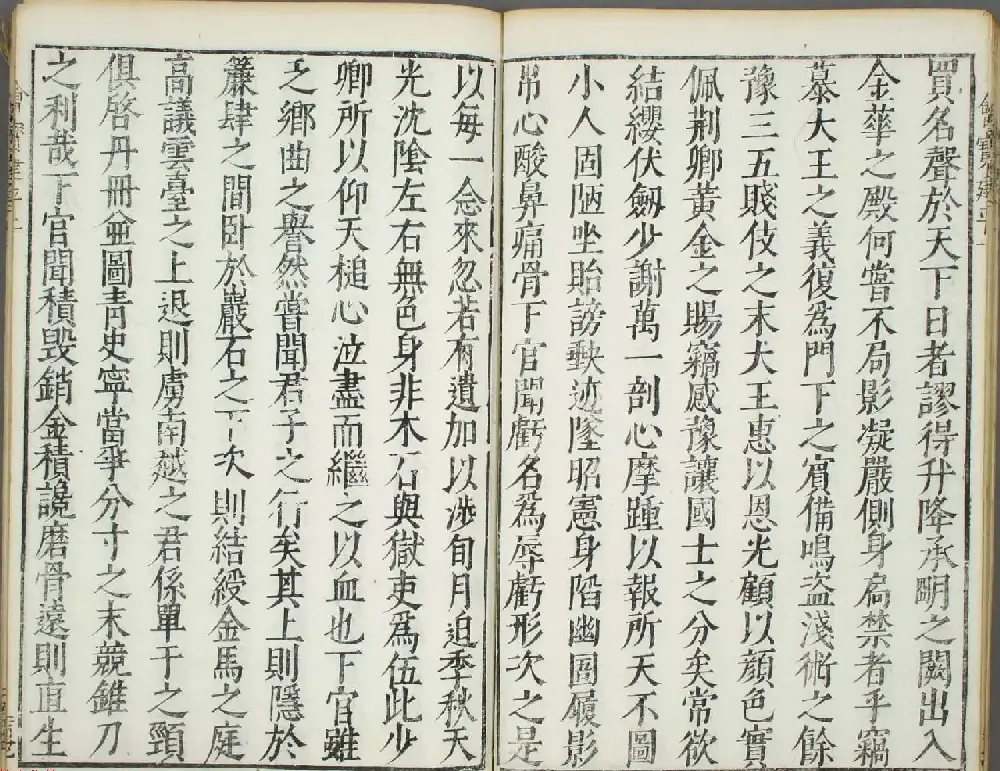 買名聲於天下日者謬得升降承明之闕出入
金華之殿何嘗不局影凝嚴側身扃禁者乎竊
慕大王之義復為門下之賓備鳴盜淺術之餘
豫三五賤伎之末大王惠以恩光顧以顔色實
佩荆卿黃金之賜竊感豫讓國士之分矣常欲
結纓伏劔少謝萬一剖心摩踵以報所天不圖
小人固陋坐貽謗䡖迹墜昭憲身陷幽圄履影
吊心酸鼻痛骨下官聞虧名為辱虧形次之是
以每一念來忽若有遺加以涉旬月迫季秋天
光沈陰左右無色身非木石與獄吏為伍此少
卿所以仰天槌心泣盡而繼之以血也下官雖
乏鄉曲之譽然嘗聞君子之行矣其上則隱於
簾肆之間卧於巖石之下次則結綬金馬之庭
高議雲臺之上退則虜南越之君係單于之頸
俱啓丹冊並圖青史寧當爭分寸之末競錐刀
之利哉下官聞積毁銷金積讒磨骨遠則直生